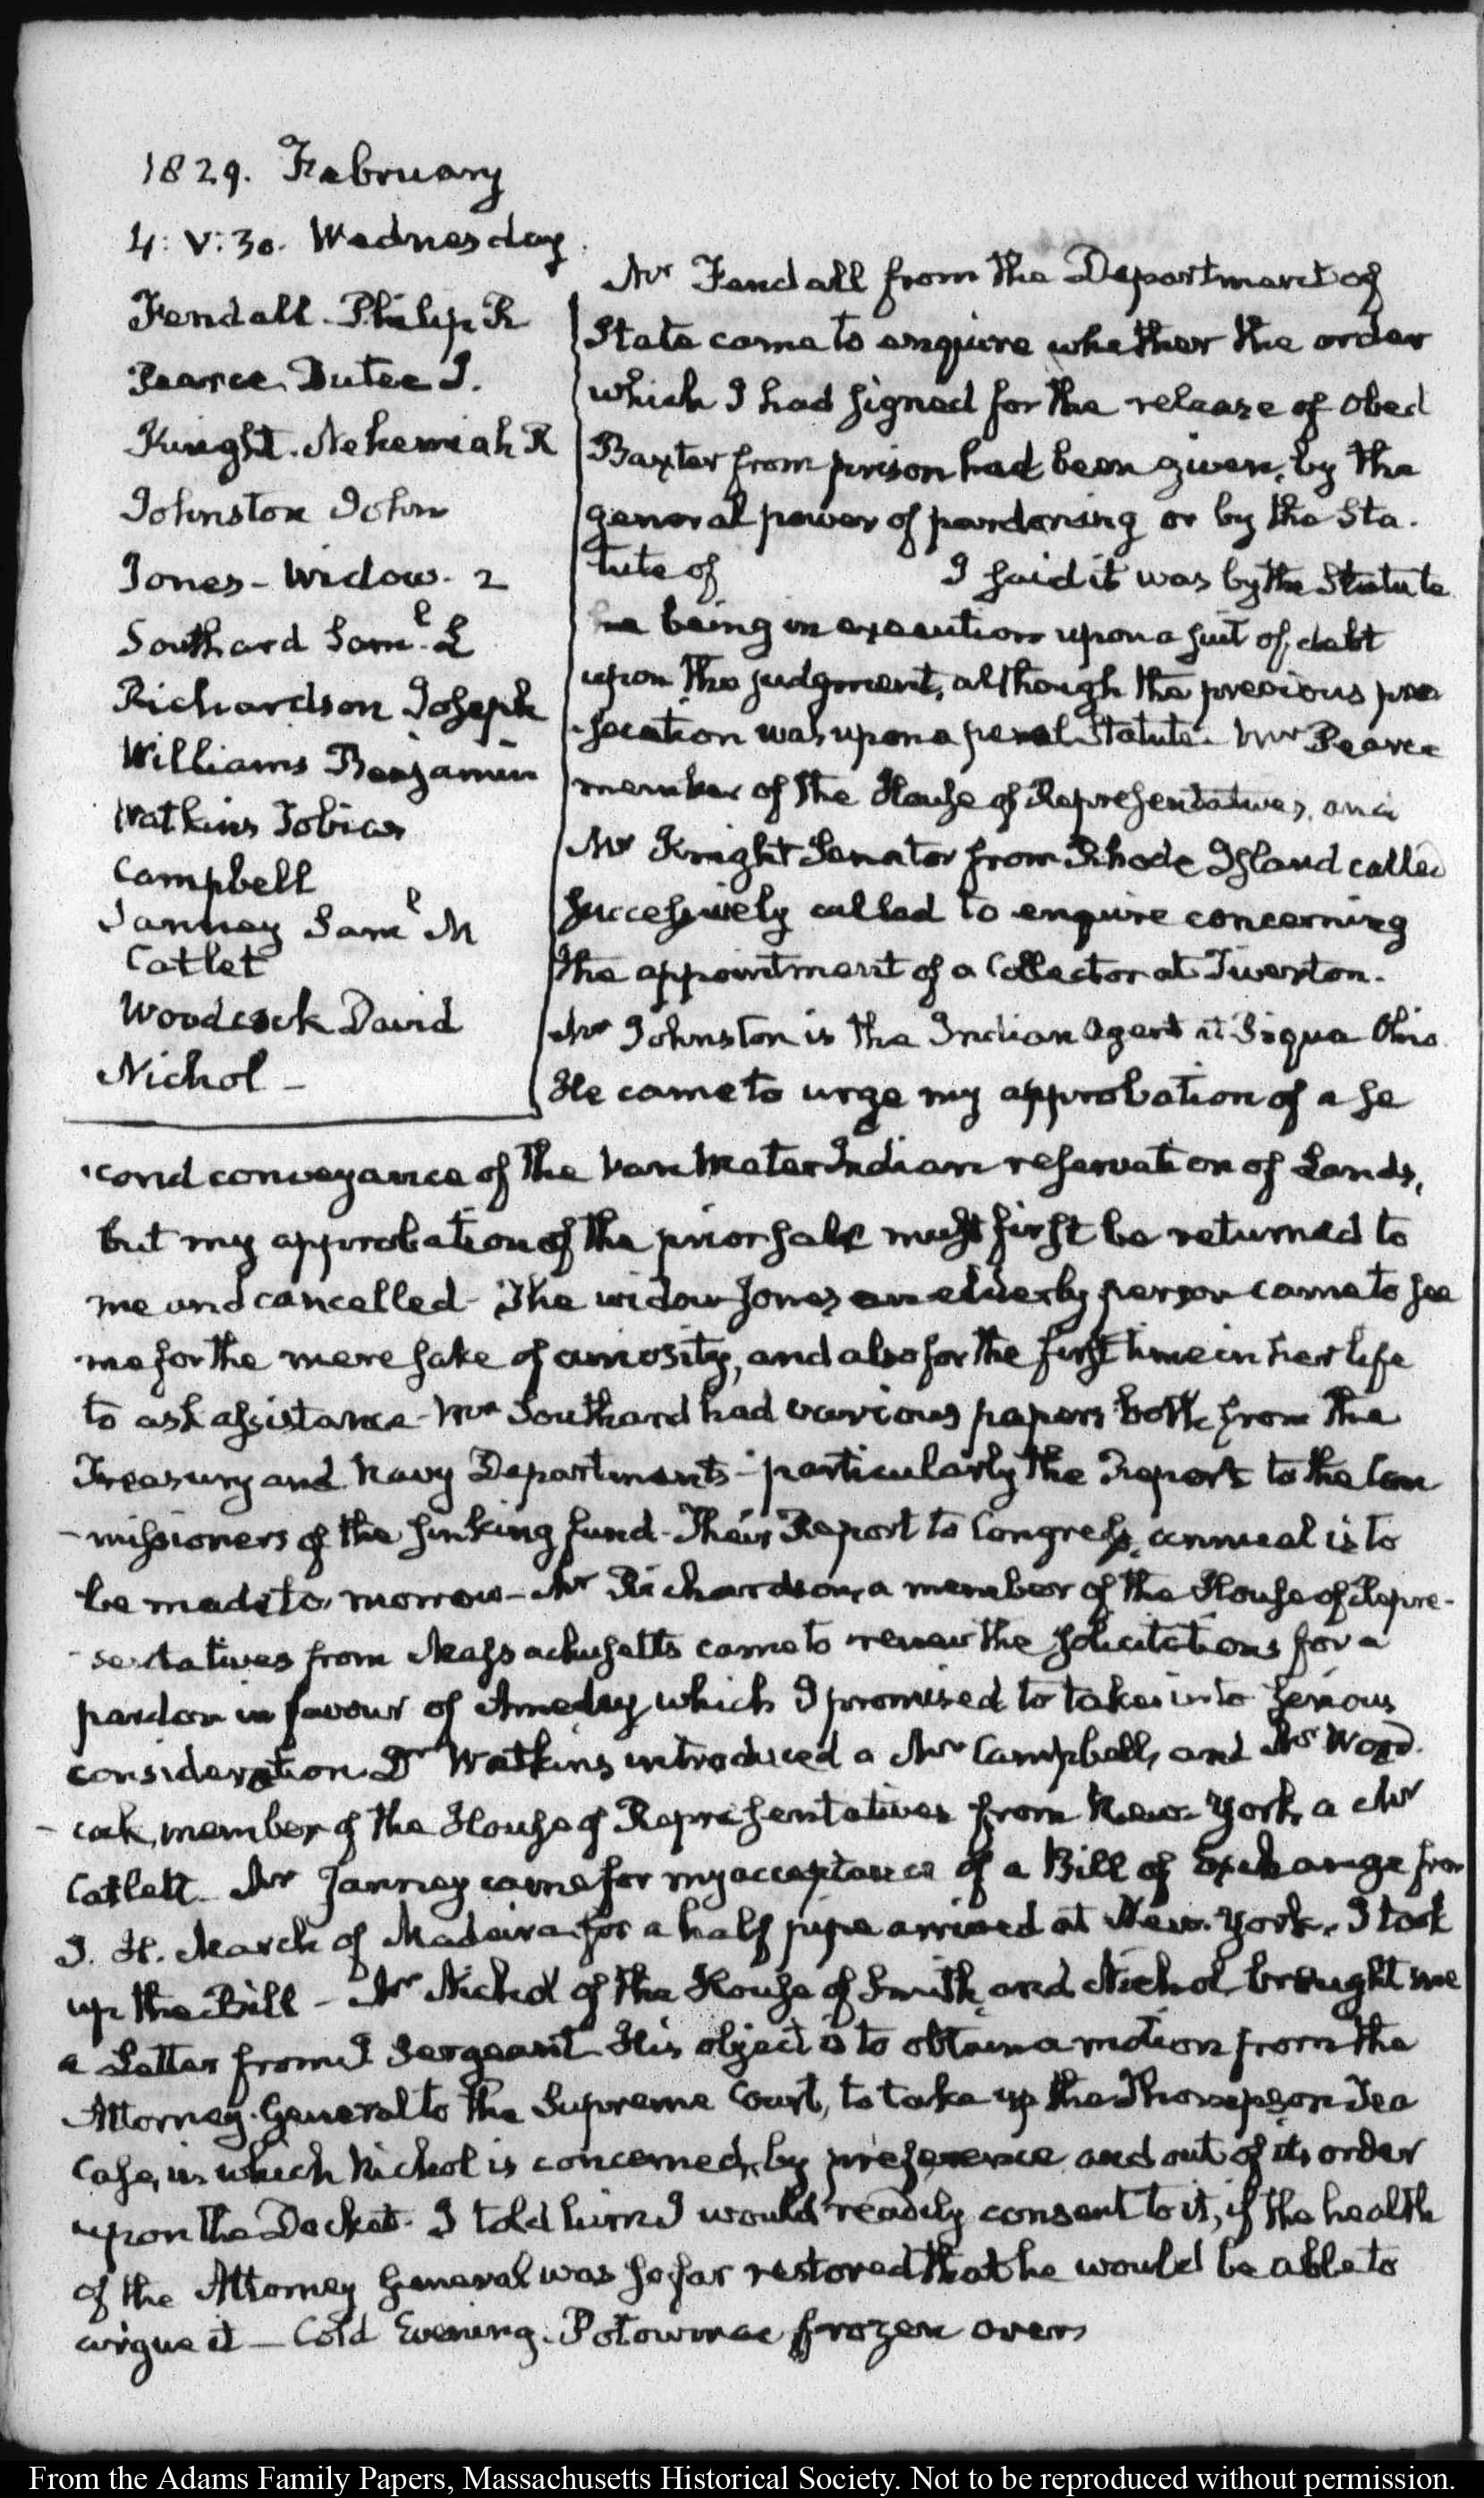 1829. February
4: V:30. Wednesday.
Fendall. Philip R
Pearce. Dutee J.
Knight. Nehemiah R
Johnston John
Jones - Widow. 2
Southard Saml. L
Richardson Joseph
Williams Benjamin
Watkins Tobias
Campbell
Janney Saml M
Catlet
Woodcock David
Nichol -
Mr Fendall from the Department of
State came to enquire whether the order
which I had signed for the release of Obed
Baxter from prison had been given, by the
general power of pardoning or by the Sta-
tute of I said it was by the Statute
he being in execution upon a suit of debt
upon the judgment, although the previous pro
-secution was upon a penal Statute. Mr Pearce
member of the House of Representatives, and
Mr Knight Senator from Rhode Island called
successively called to enquire concerning
the appointment of a Collector at Tiverton.
Mr Johnston is the Indian Agent at Piqua Ohio.
He came to urge my approbation of a se
-cond conveyance of the Van Meter Indian reservation of Lands,
but my approbation of the prior sale must first be returned to
me and cancelled - The widow Jones an elderly person came to see
me for the mere sake of curiosity, and also for the first time in her life
to ask assistance - Mr Southard had various papers both from the
Treasury and Navy Departments - particularly the Report to the Com
-missioners of the sinking fund - Their Report to Congress, annual is to
be made to-morrow - Mr Richardson, a member of the House of Repre-
-sentatives from Massachusetts came to renew the solicitations for a
pardon in favour of Amedey which I promised to take into serious
consideration. Dr Watkins introduced a Mr Campbell, and Mr Wood-
-cock, member of the House of Representatives from New-York, a Mr
Catlett - Mr Janney came for my acceptance of a Bill of Exchange from
J. H. March of Madeira for a half pipe arrived at New-York. I took
up the Bill - Mr Nichol of the House of Smith and Nichol brought me
a Letter from J Sergeant. His object is to obtain a motion from the
Attorney-General to the Supreme Court, to take up the Thompson Tea
Case, in which Nichol is concerned, by preference and out of its order
upon the Docket. I told him I would readily consent to it, if the health
of the Attorney General was so far restored that he would be able to
argue it - Cold Evening. Potowmac frozen over
From the Adams Family Papers, Massachusetts Historical Society. Not to be reproduced without permission.